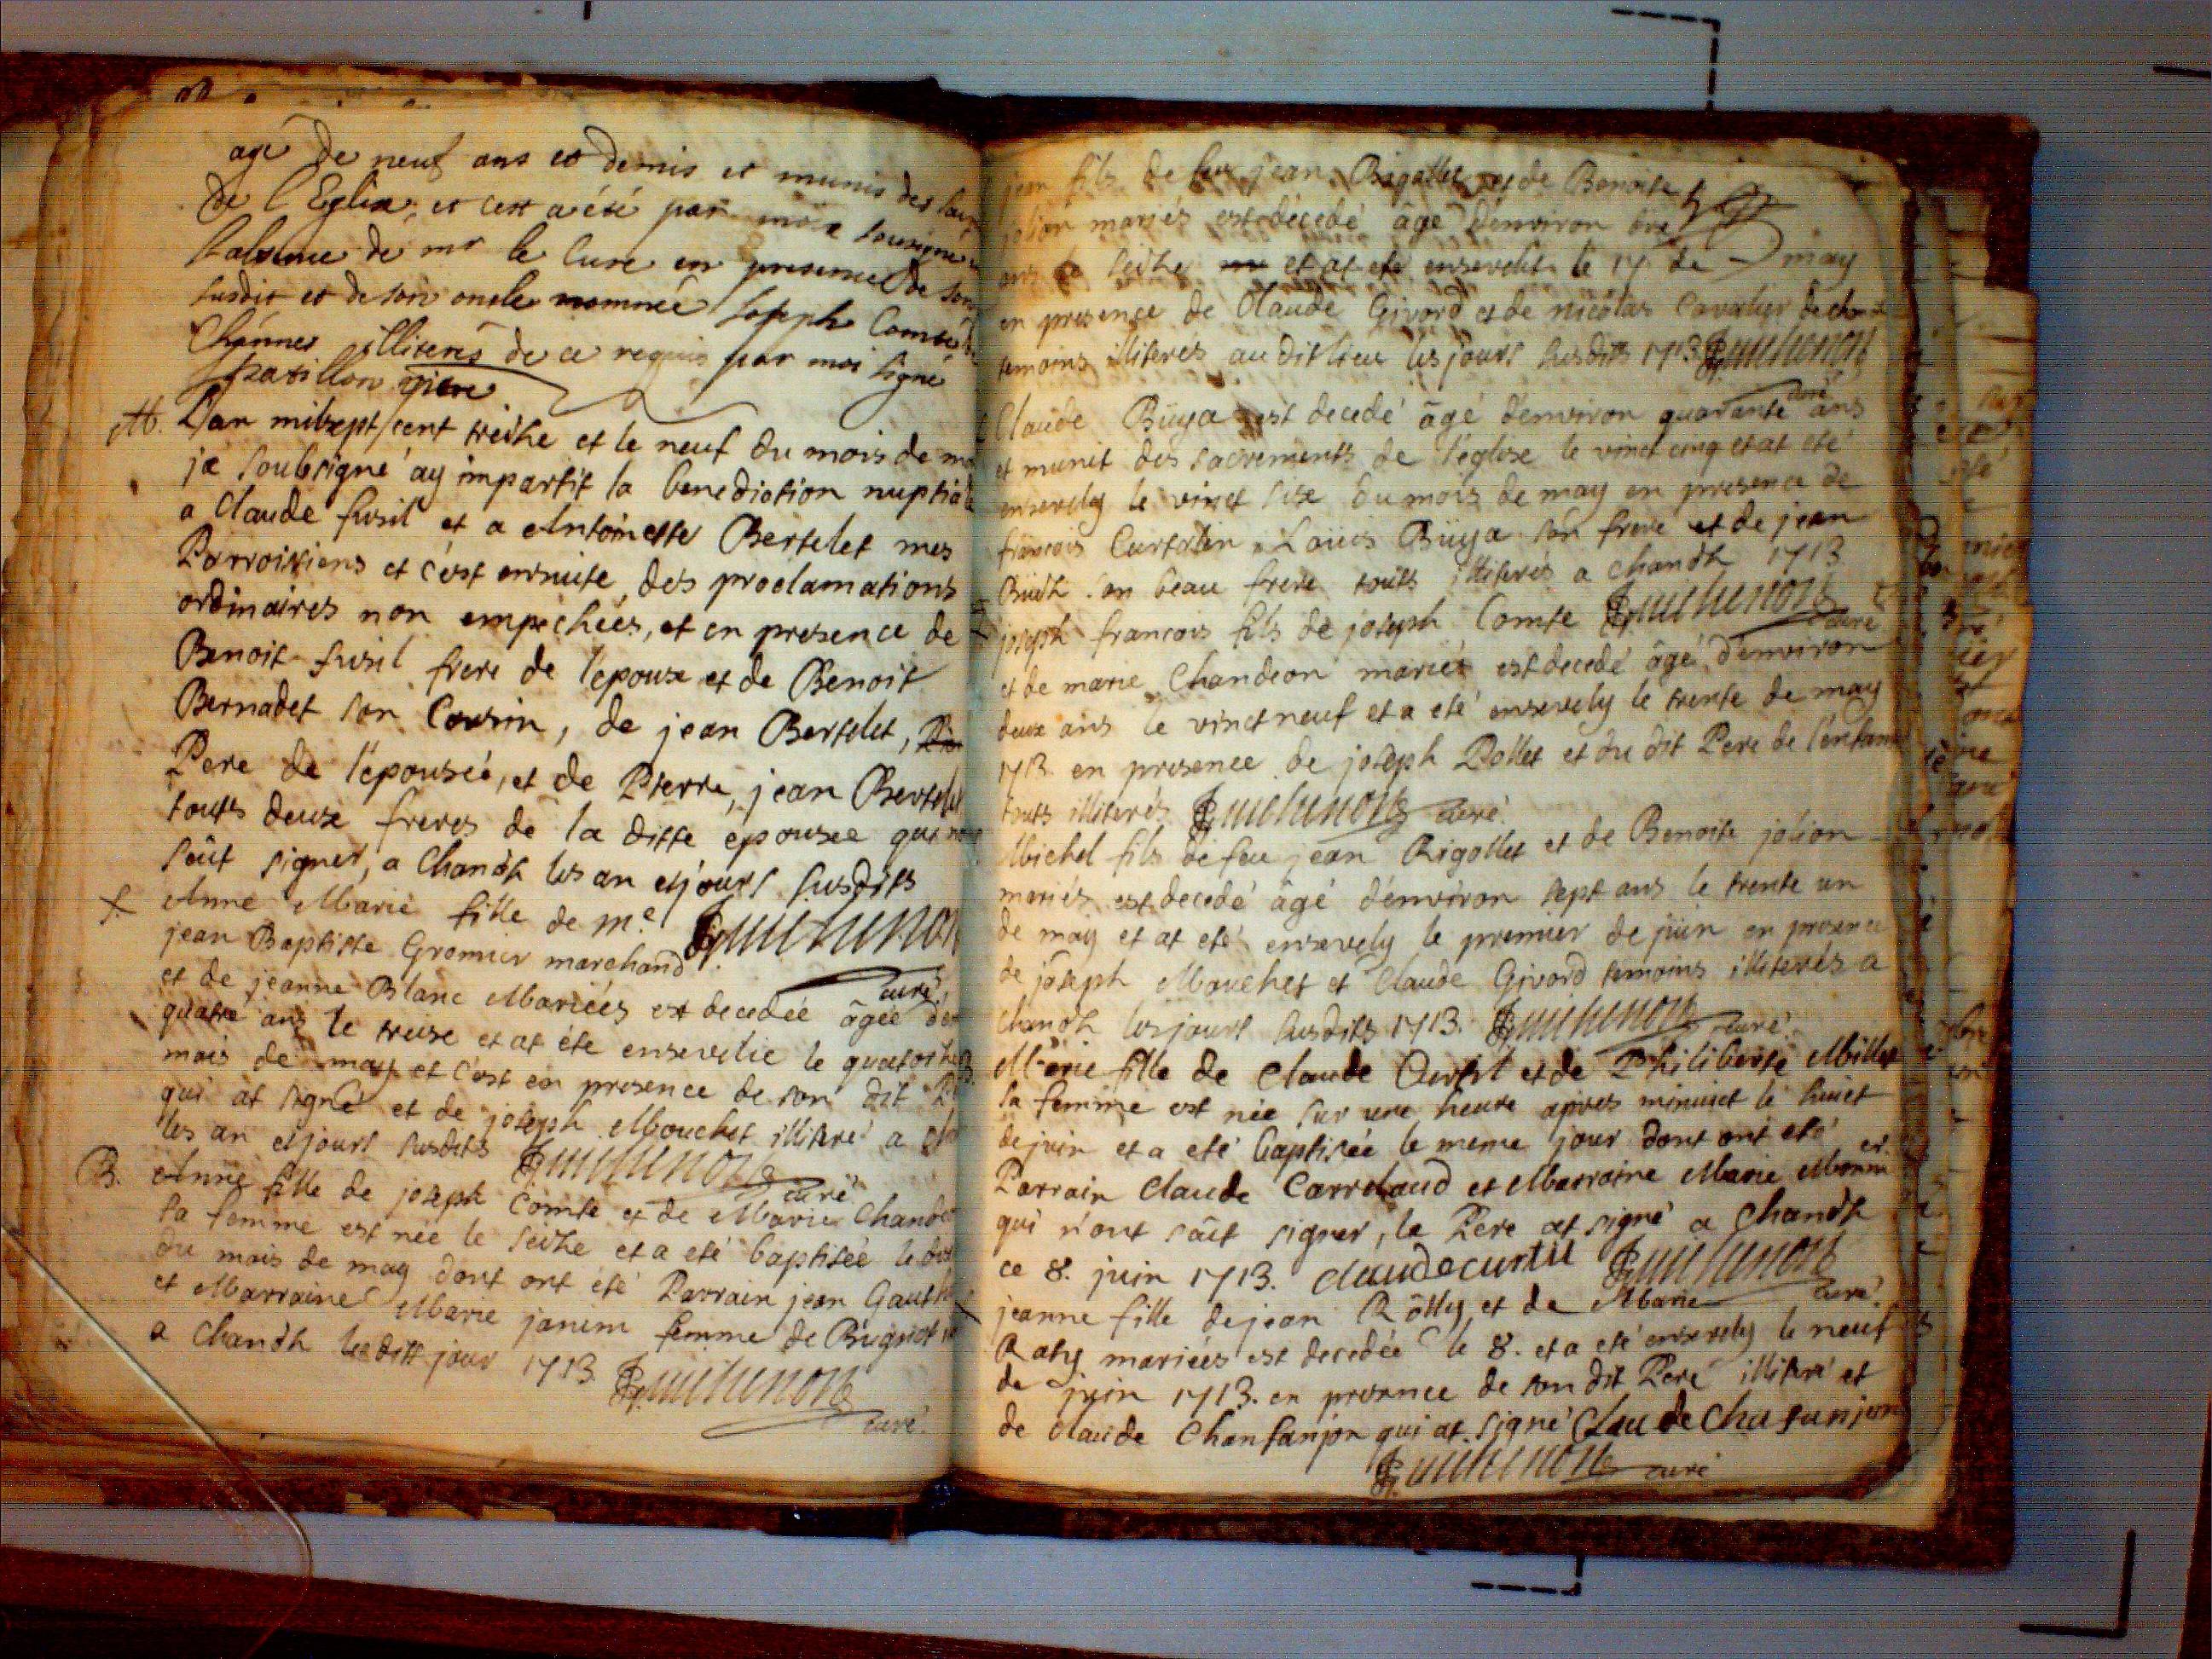 agé de neuf ans et demis et munis des
de l'Eglise, et cest a été par moi sousigné
l'absence de mr le Curé en presence de son
susdit et de son oncle nommée Joseph Comte
illiterés de ce requis par moi signé
vicre
M. L'an mil sept cent treihe et le neuf du mois de
je soubsigné ay impartit la benediction nuptiale
a Claude fusil et a Antoinette Bertelet mes
Parroissiens et c'est ensuite des proclamations
ordinaires non empechées, et en presence de
Benoit fusil frere de l'epoux et de Benoit
Bernadet son Cousin, de jean Bertelet,
Pere de l'épousée, et de Pierre, jean Bertelet
touts deux freres de la ditte épousée qui
sçut signer, a Chanoh les an et jours susdits
f. Anne Marie fille de me. Guichenon
jean Baptiste Gromier marchand curé
et de jeanne Blanc Mariées est decedée âgée
quatre ans le treise et at été ensevelie le quatorhe
mois de may et c'est en presence de son dit
qui at signé et de joseph Mouchet illiteré a
les an et jours susdits Guichenon curé
B. Anne fille de joseph Comte et de Marie
sa femme est née le seihe et a eté baptisée le
du mois de may dont ont été Parrain jean
et Marraine Marie janim femme de
a Chanoh les dits jour 1713 Guichenon
curé
jean fils de feu jean Rigollet et de Benoite
jolion mariés est decedé âgé d'environ
ans le seihe et at eté ensevelit le 17 de may
en presence de Claude Givord et de nicolas Cavalier
temoins illiterés au dit lieu les jours susdits 1713 Guichenon
curé
Claude Büya est decedé âgé d'environ quarante ans
et munit des sacrements de l'église le vinct cinq et at eté
ensevely le vinct sixe du mois de may en presence de
françois Loüis Büya son frere et de jean
son beau frere touts illiterés a chanoh 1713
joseph francois fils de joseph Comte Guichenon curé
et de marie Chandeon mariés est decedé âgé d'environ
deux ans le vinct neuf et a eté ensevely le trente de may
1713. en presence de joseph Pollet et du dit Pere de l'enfant
touts illiterés Guichenon curé
Michel fils de feu jean Rigollet et de Benoite jolion
mariés est decedé âgé d'environ sept ans le trente un
de may et at eté ensevely le premier de juin en presence
de joseph Mouchet et Claude Givord temoins illiterés a
chanoh les jours susdits 1713. Guichenon curé
Marie fille de Claude Curtil et de Philiberte Millet
sa femme est née sur une heure apres minuict le huict
de juin et a eté baptisée le meme jour dont ont eté
Parrain Claude Carrelaud et Marraine Marie
qui n'ont sçut signer, le Pere at signé a Chanoh
ce 8. juin 1713. claude curtil Guichenon
jeanne fille de jean Rôlly et de Marie curé
Raty mariées est decedée le 8. et a eté ensevely le neuf
de juin 1713. en presence de son dit Pere illiteré et
de Claude Chanfanjon qui at signé Claude Chafanjon
Guichenon curé